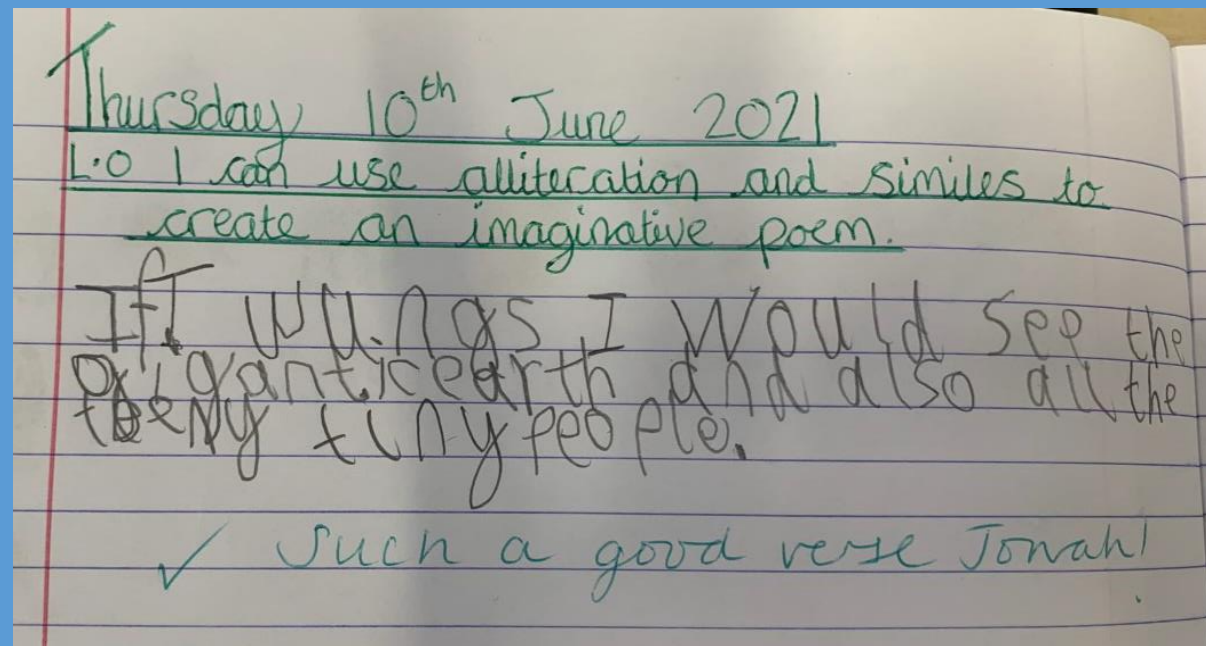 Thursday 10th June 2021
L.O I can use alliteration and similes to
create an imaginative poem.
If I wings I would see the
gigantic earth and also all the
teeny tiny people.
✓ Such a good verse Jonah!